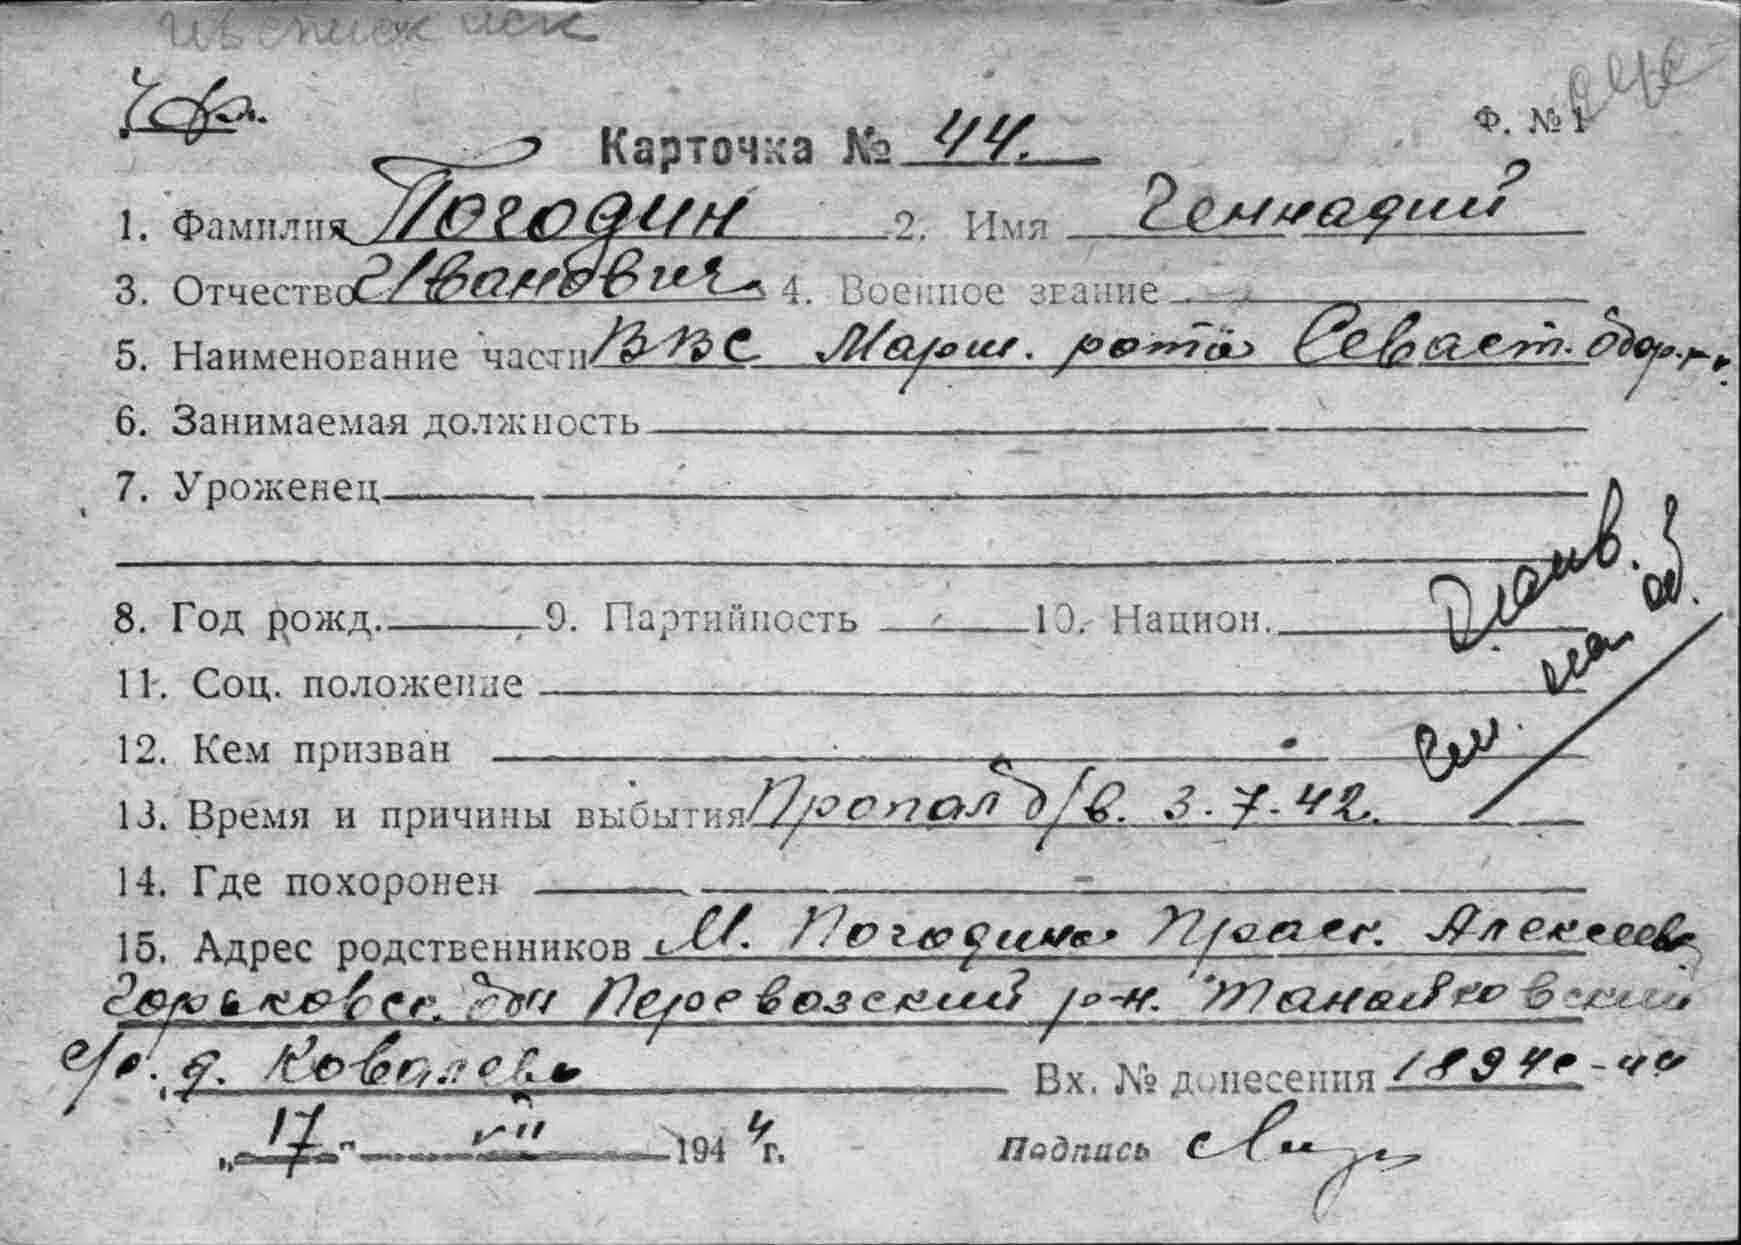 Ф. № 1
Карточка № 44.
1. Фамилия Погодин 2. Имя Геннадий
3. Отчество Иванович. 4. Военное звание
5. Наименование части ВВС Марш. рота Севаст. Обор-ч.
6. Занимаемая должность
7. Уроженец
8. Год рожд. 9. Партийность 10. Национ.
11. Соц. положение
12. Кем призван
см. на об.
13. Время и причины выбытия Пропал б/в. 3.7.42.
14. Где похоронен
15. Адрес родственников М. Погодина Праск. Алексеев
Горьковск. обл Перевозский р-н. Танайковский
с/с. д. Ковалево
Вх. № донесения
„17“ VII 1944 г. Подпись